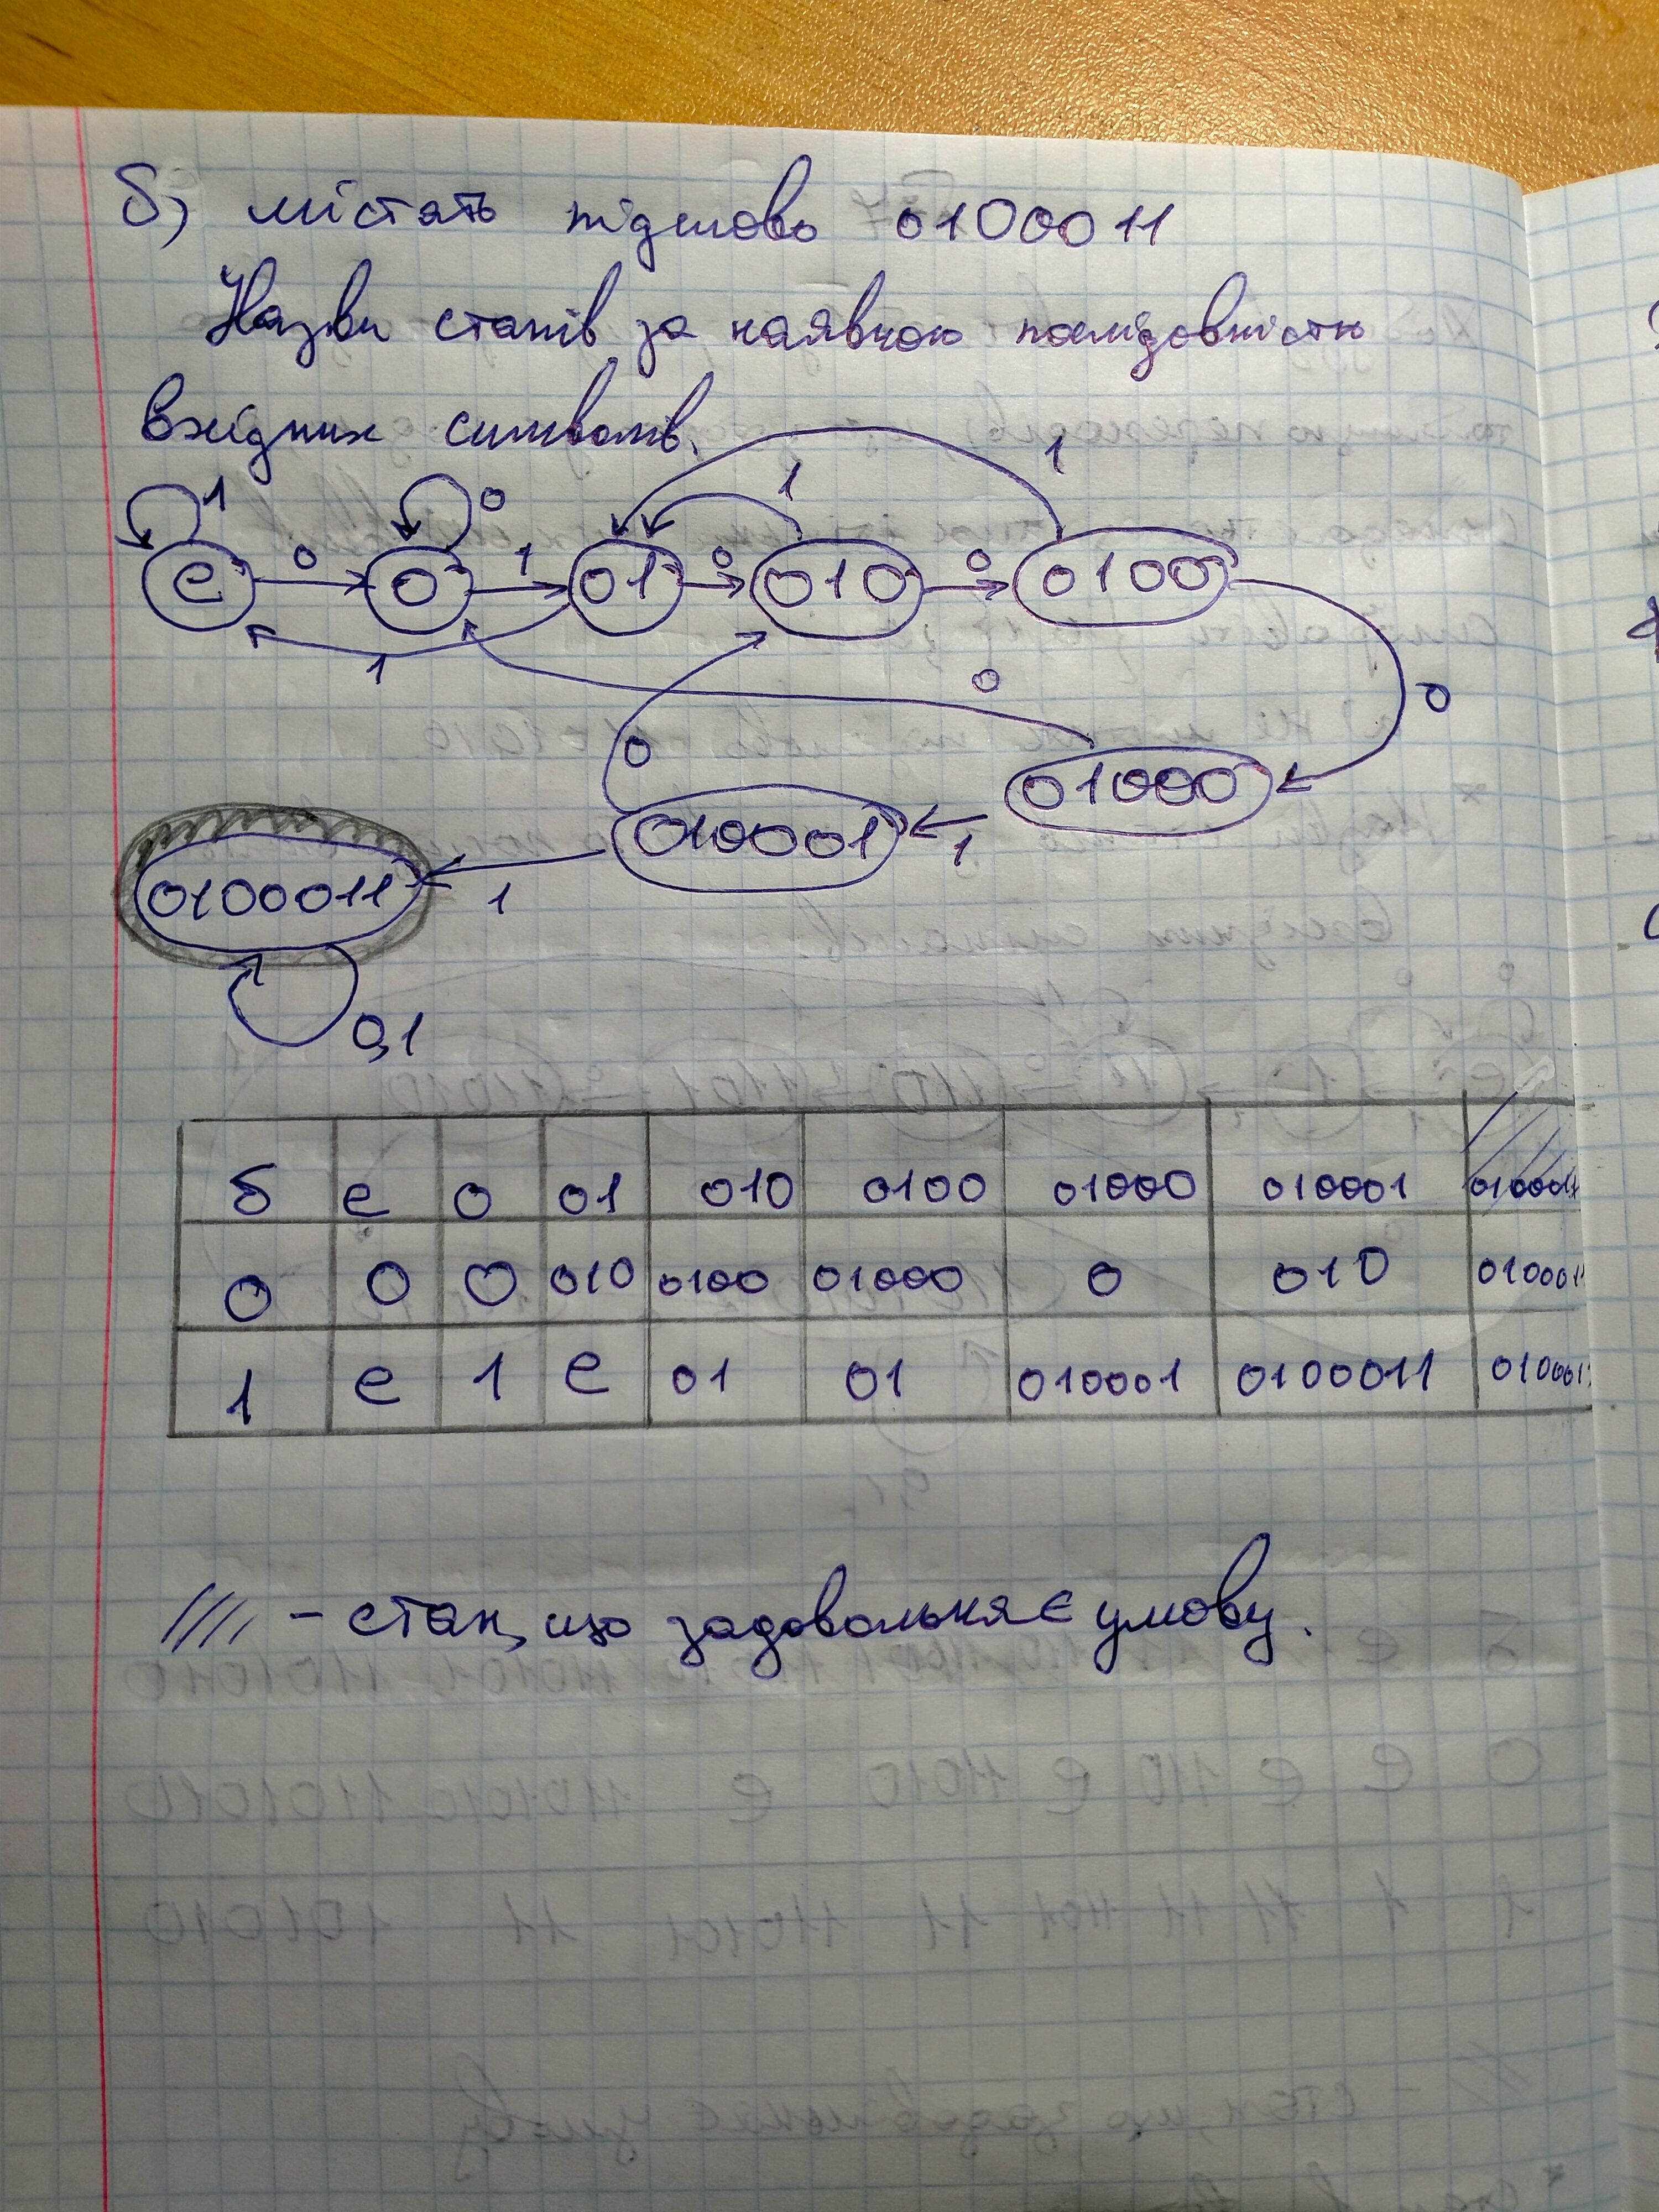 б) містять підслово 0100011
Назви станів за наявною послідовністю
вхідних символів.
1 0 1 1
e 0 0 1 01 0 010 0 0100
1 0 0
0 01000
0100011 1 010001 1
0,1
δ e 0 01 010 0100 01000 010001 0100011
0 0 0 010 0100 01000 0 010 0100011
1 e 1 e 01 01 010001 0100011 0100011
/// – стан, що задовольняє умову.